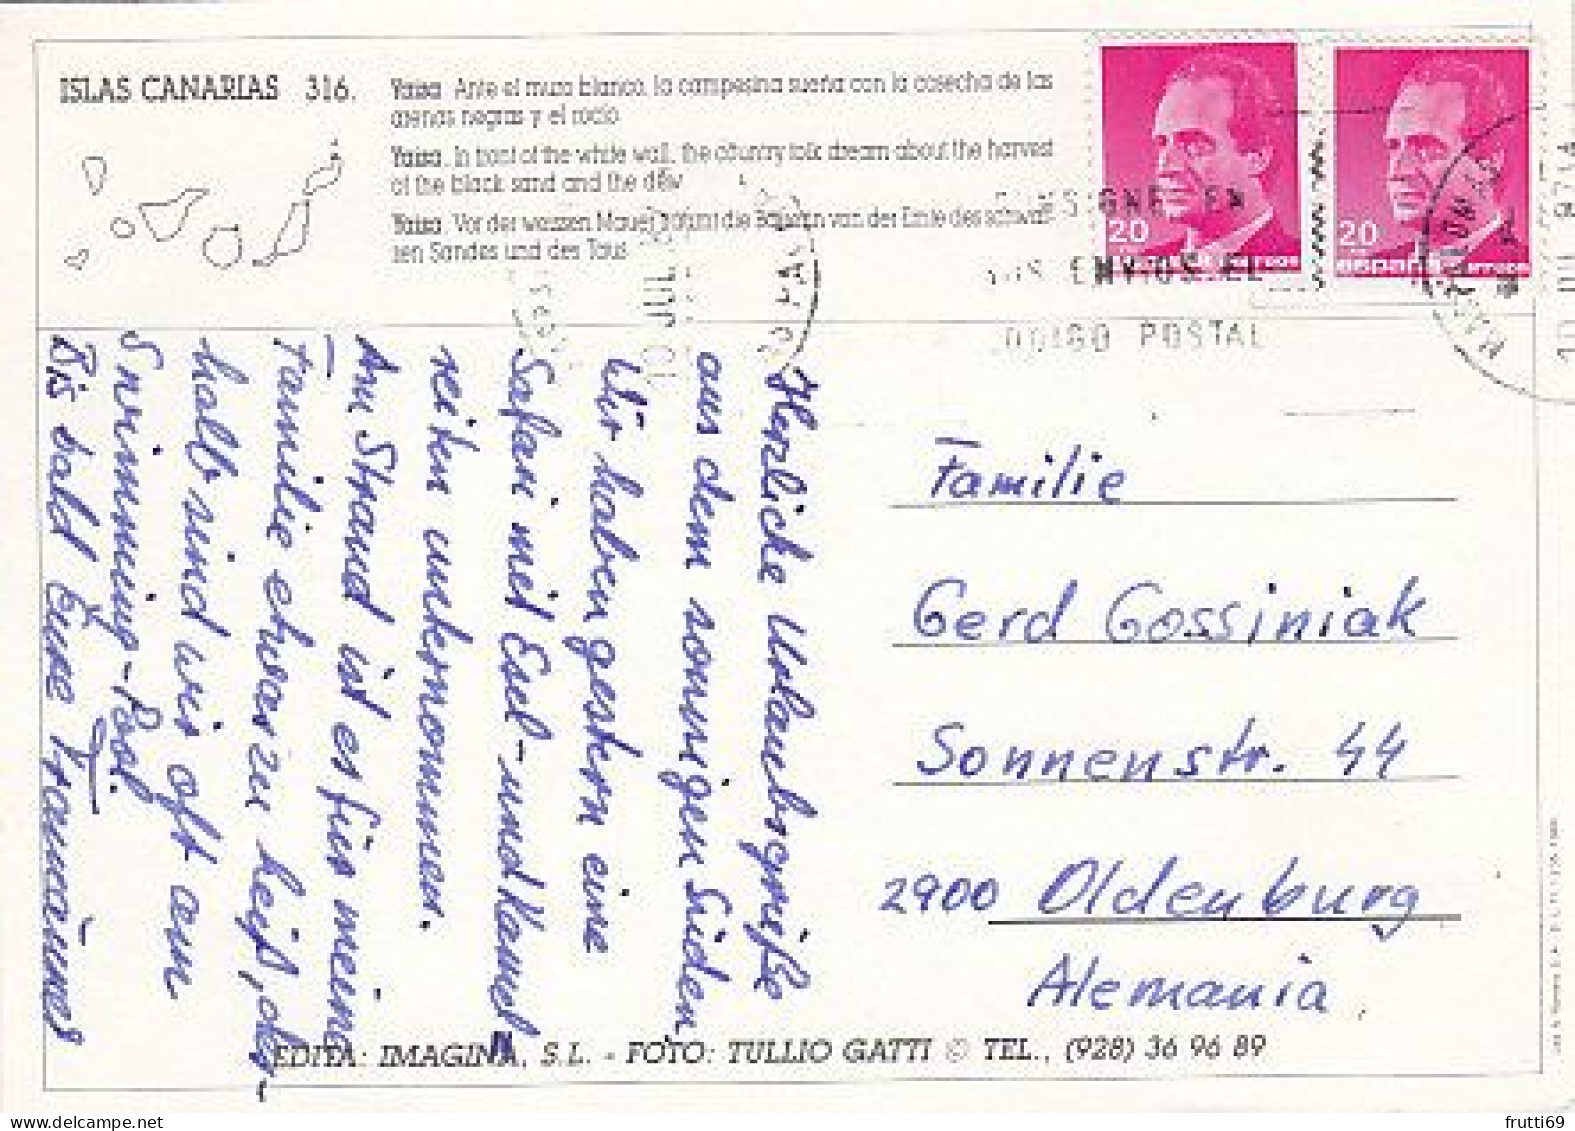 ISLAS CANARIAS 316.
Yaiza. Ante el muro blanco, la campesina sueña con la cosecha de las
arenas negras y el rocío.
Yaiza. In front of the white wall, the country folk dream about the harvest
of the black sand and the dew.
Yaiza. Vor der weissen Mauer träumt die Bäuerin von der Ernte des schwar-
zen Sandes und des Taus.
20
20
españa
CORREOS
10 JUL
CONSIGNE EN
SUS ENVIOS EL
CODIGO POSTAL
10 JUL
Herzliche Urlaubsgrüße
aus dem sonnigen Süden,
Wir haben gestern eine
Safari mit Esel- und Kamel-
reiten unternommen.
Am Strand ist es für meine
Familie etwas zu heiß, des-
halb sind wir oft am
Swimming-Pool.
Bis bald Eure
Familie
Gerd Gossiniak
Sonnenstr. 44
2900 Oldenburg
Alemania
EDITA: IMAGINA, S.L. - FOTO: TULLIO GATTI © TEL., (928) 36 96 89
frutti69